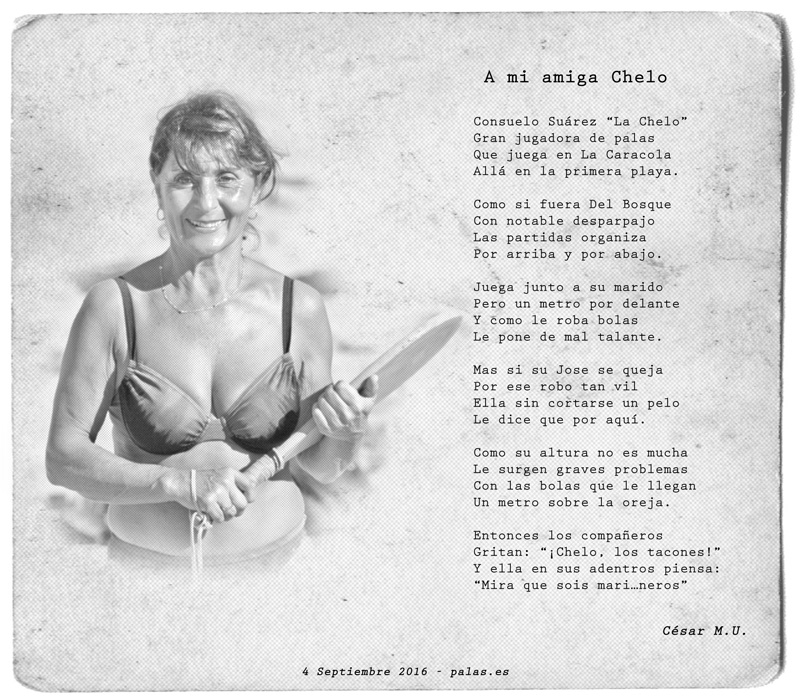 A mi amiga Chelo
Consuelo Suárez “La Chelo”
Gran jugadora de palas
Que juega en La Caracola
Allá en la primera playa.
Como si fuera Del Bosque
Con notable desparpajo
Las partidas organiza
Por arriba y por abajo.
Juega junto a su marido
Pero un metro por delante
Y como le roba bolas
Le pone de mal talante.
Mas si su Jose se queja
Por ese robo tan vil
Ella sin cortarse un pelo
Le dice que por aquí.
Como su altura no es mucha
Le surgen graves problemas
Con las bolas que le llegan
Un metro sobre la oreja.
Entonces los compañeros
Gritan: “¡Chelo, los tacones!”
Y ella en sus adentros piensa:
“Mira que sois mari…neros”
César M.U.
4 Septiembre 2016 - palas.es